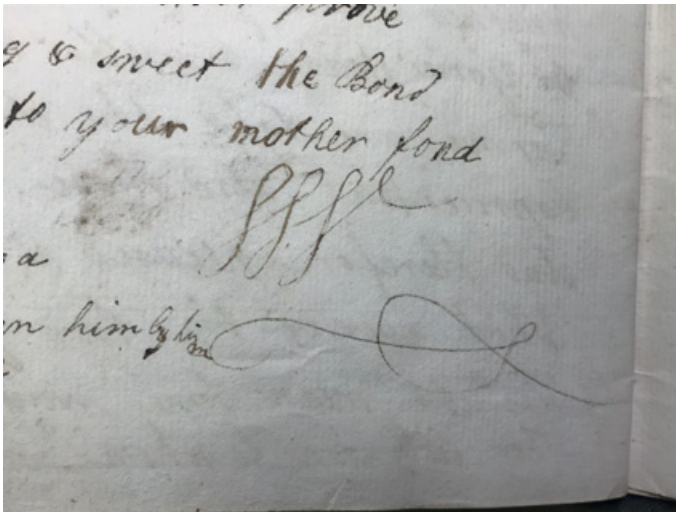 prove
g & sweet the Bond
to your mother fond
a
n him by him